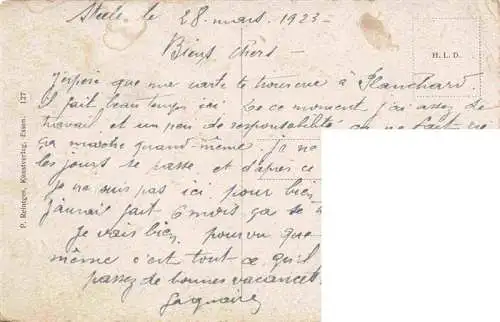 Steele, le 28. mars. 1923 -
Biens chers -
H.L.D.
J'espère que ma carte te trouvera à Planchard
il fait beau temps ici. En ce moment, j'ai assez de
travail et un peu de responsabilité on ne fait
ça marche quand-même. Je ne
les jours se passe, et d'après ce
Je ne suis pas ici pour bien
j'aurai fait 6 mois, ça se
Je vais bien, pourvu que
même c'est tout ce qu'il
passez de bonnes vacances
P. Reintges, Kunstverlag, Essen. 127